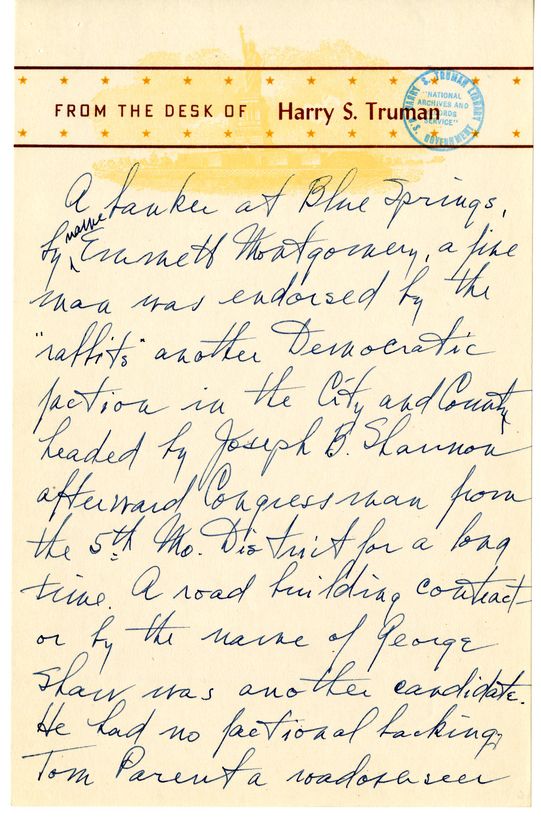 FROM THE DESK OF Harry S. Truman
HARRY S. TRUMAN LIBRARY
"NATIONAL
ARCHIVES AND
RECORDS
SERVICE"
U.S. GOVERNMENT
A banker at Blue Springs,
by name Emmett Montgomery, a fine
man was endorsed by the
"rabbits" another Democratic
faction in the City and County
headed by Joseph B. Shannon
afterward Congressman from
the 5th Mo. District for a long
time. A road building contract-
or by the name of George
Shaw was another candidate.
He had no factional backing,
Tom Parent a roadoverseer